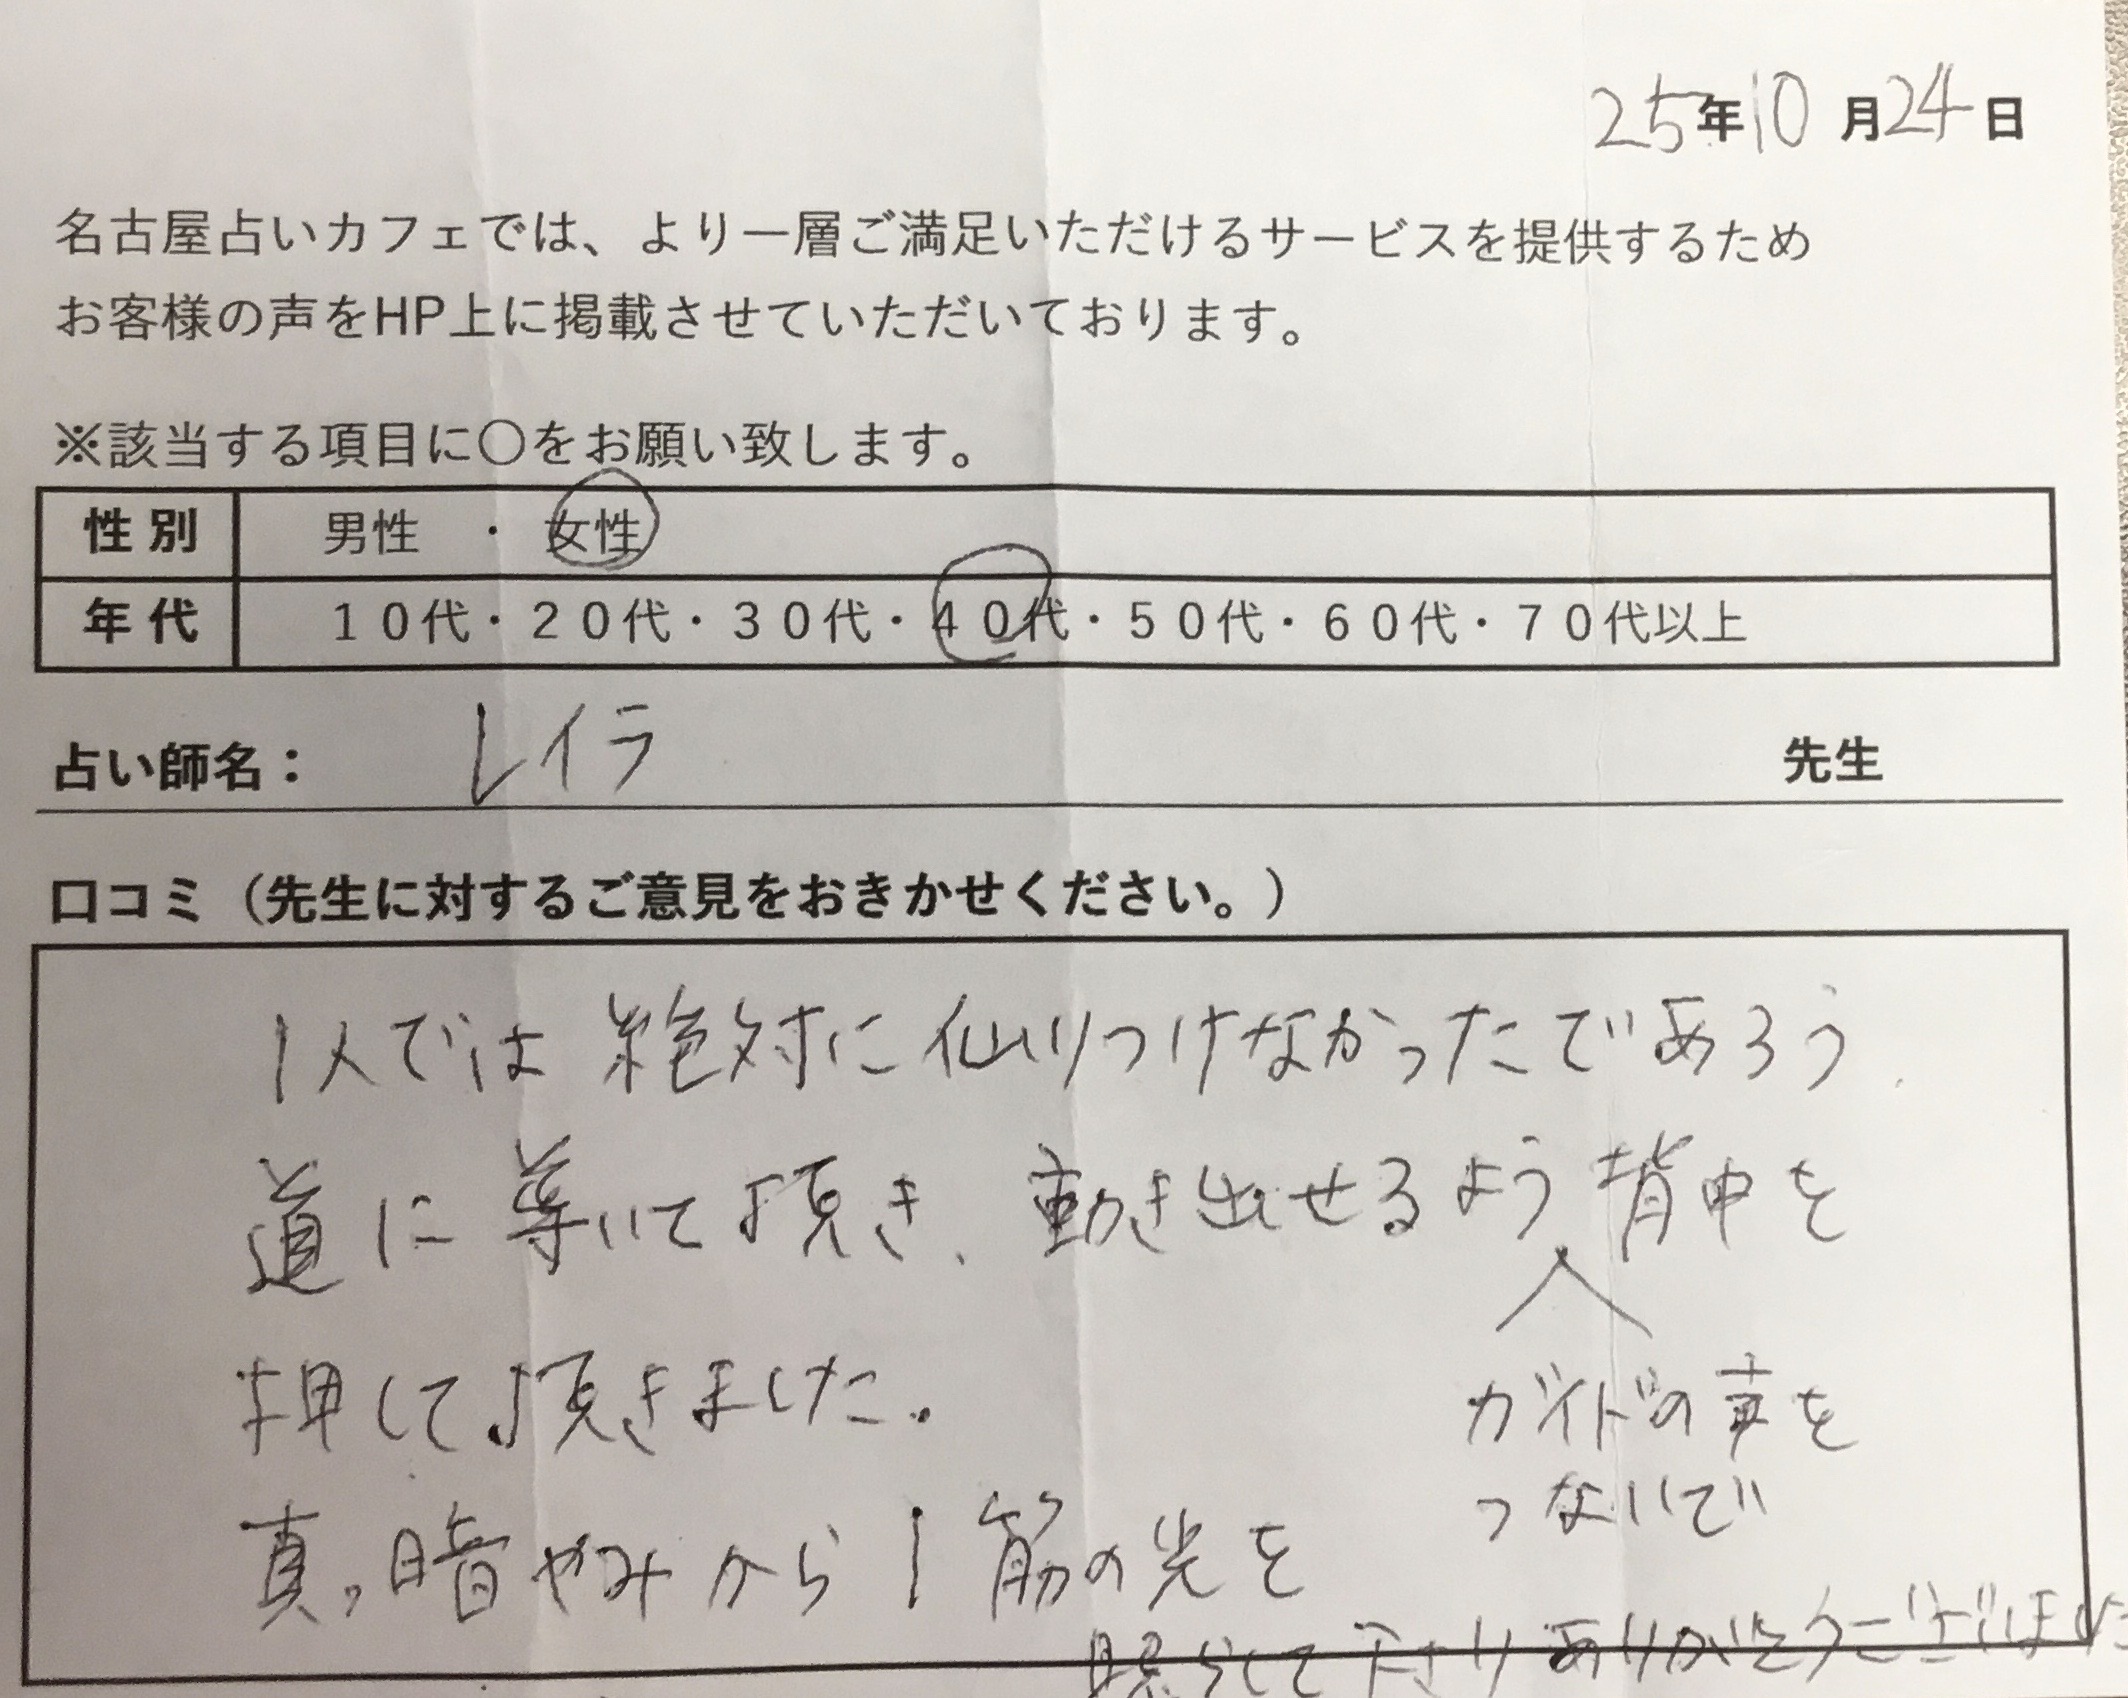 25年10月24日
名古屋占いカフェでは、より一層ご満足いただけるサービスを提供するため
お客様の声をHP上に掲載させていただいております。
※該当する項目に〇をお願い致します。
性別 男性 ・ 女性
年代 10代・20代・30代・40代・50代・60代・70代以上
占い師名： レイラ 先生
口コミ（先生に対するご意見をおきかせください。）
1人では絶対に辿りつけなかったであろう
道に導いて頂き、動き出せるよう背中を
押して頂きました。
ガイドの声を
つないで
真っ暗やみから1筋の光を
照らして下さりありがとうございました